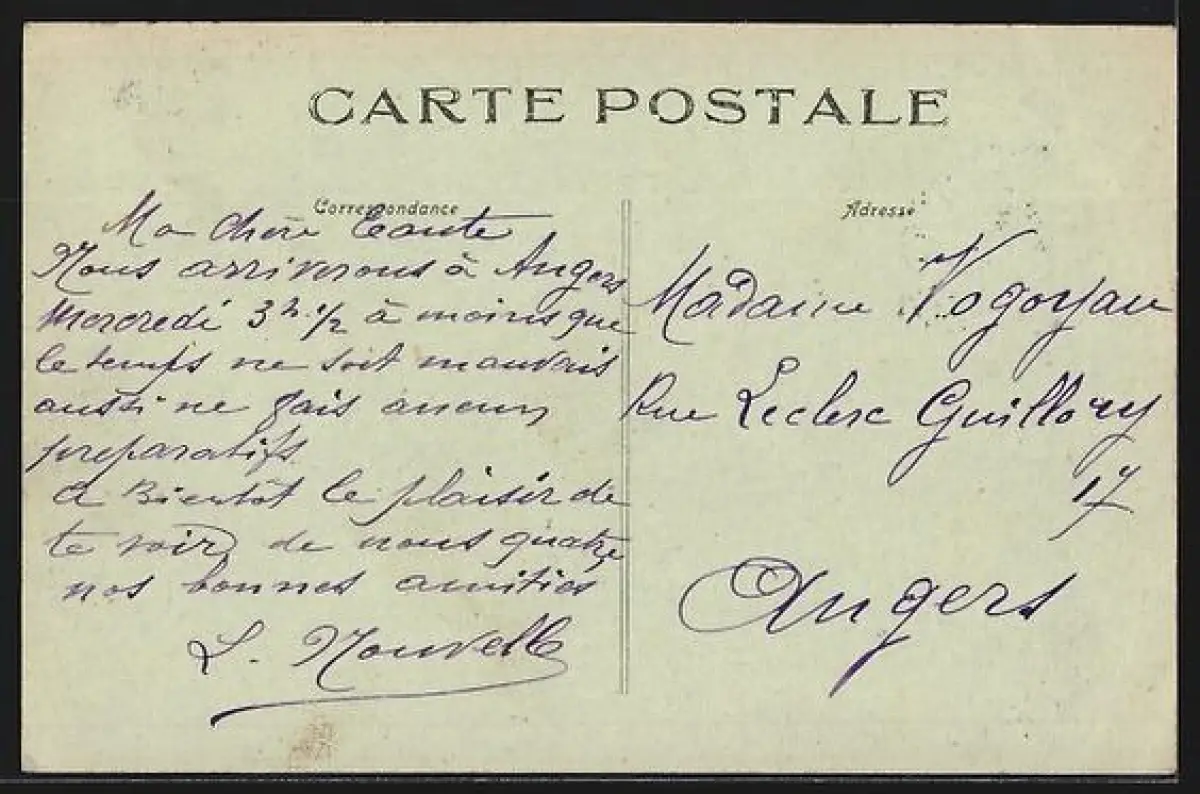 CARTE POSTALE
Correspondance
Adresse
Ma chère Tante
Nous arriverons à Angers
Mercredi 3h 1/2 à moins que
le temps ne soit mauvais
aussi ne fais aucun
preparatifs
a Bientôt le plaisir de
te voir, de nous quatre
nos bonnes amitiés
L. Nouvelle
Madame
Rue Leclerc Guillory
17
Angers